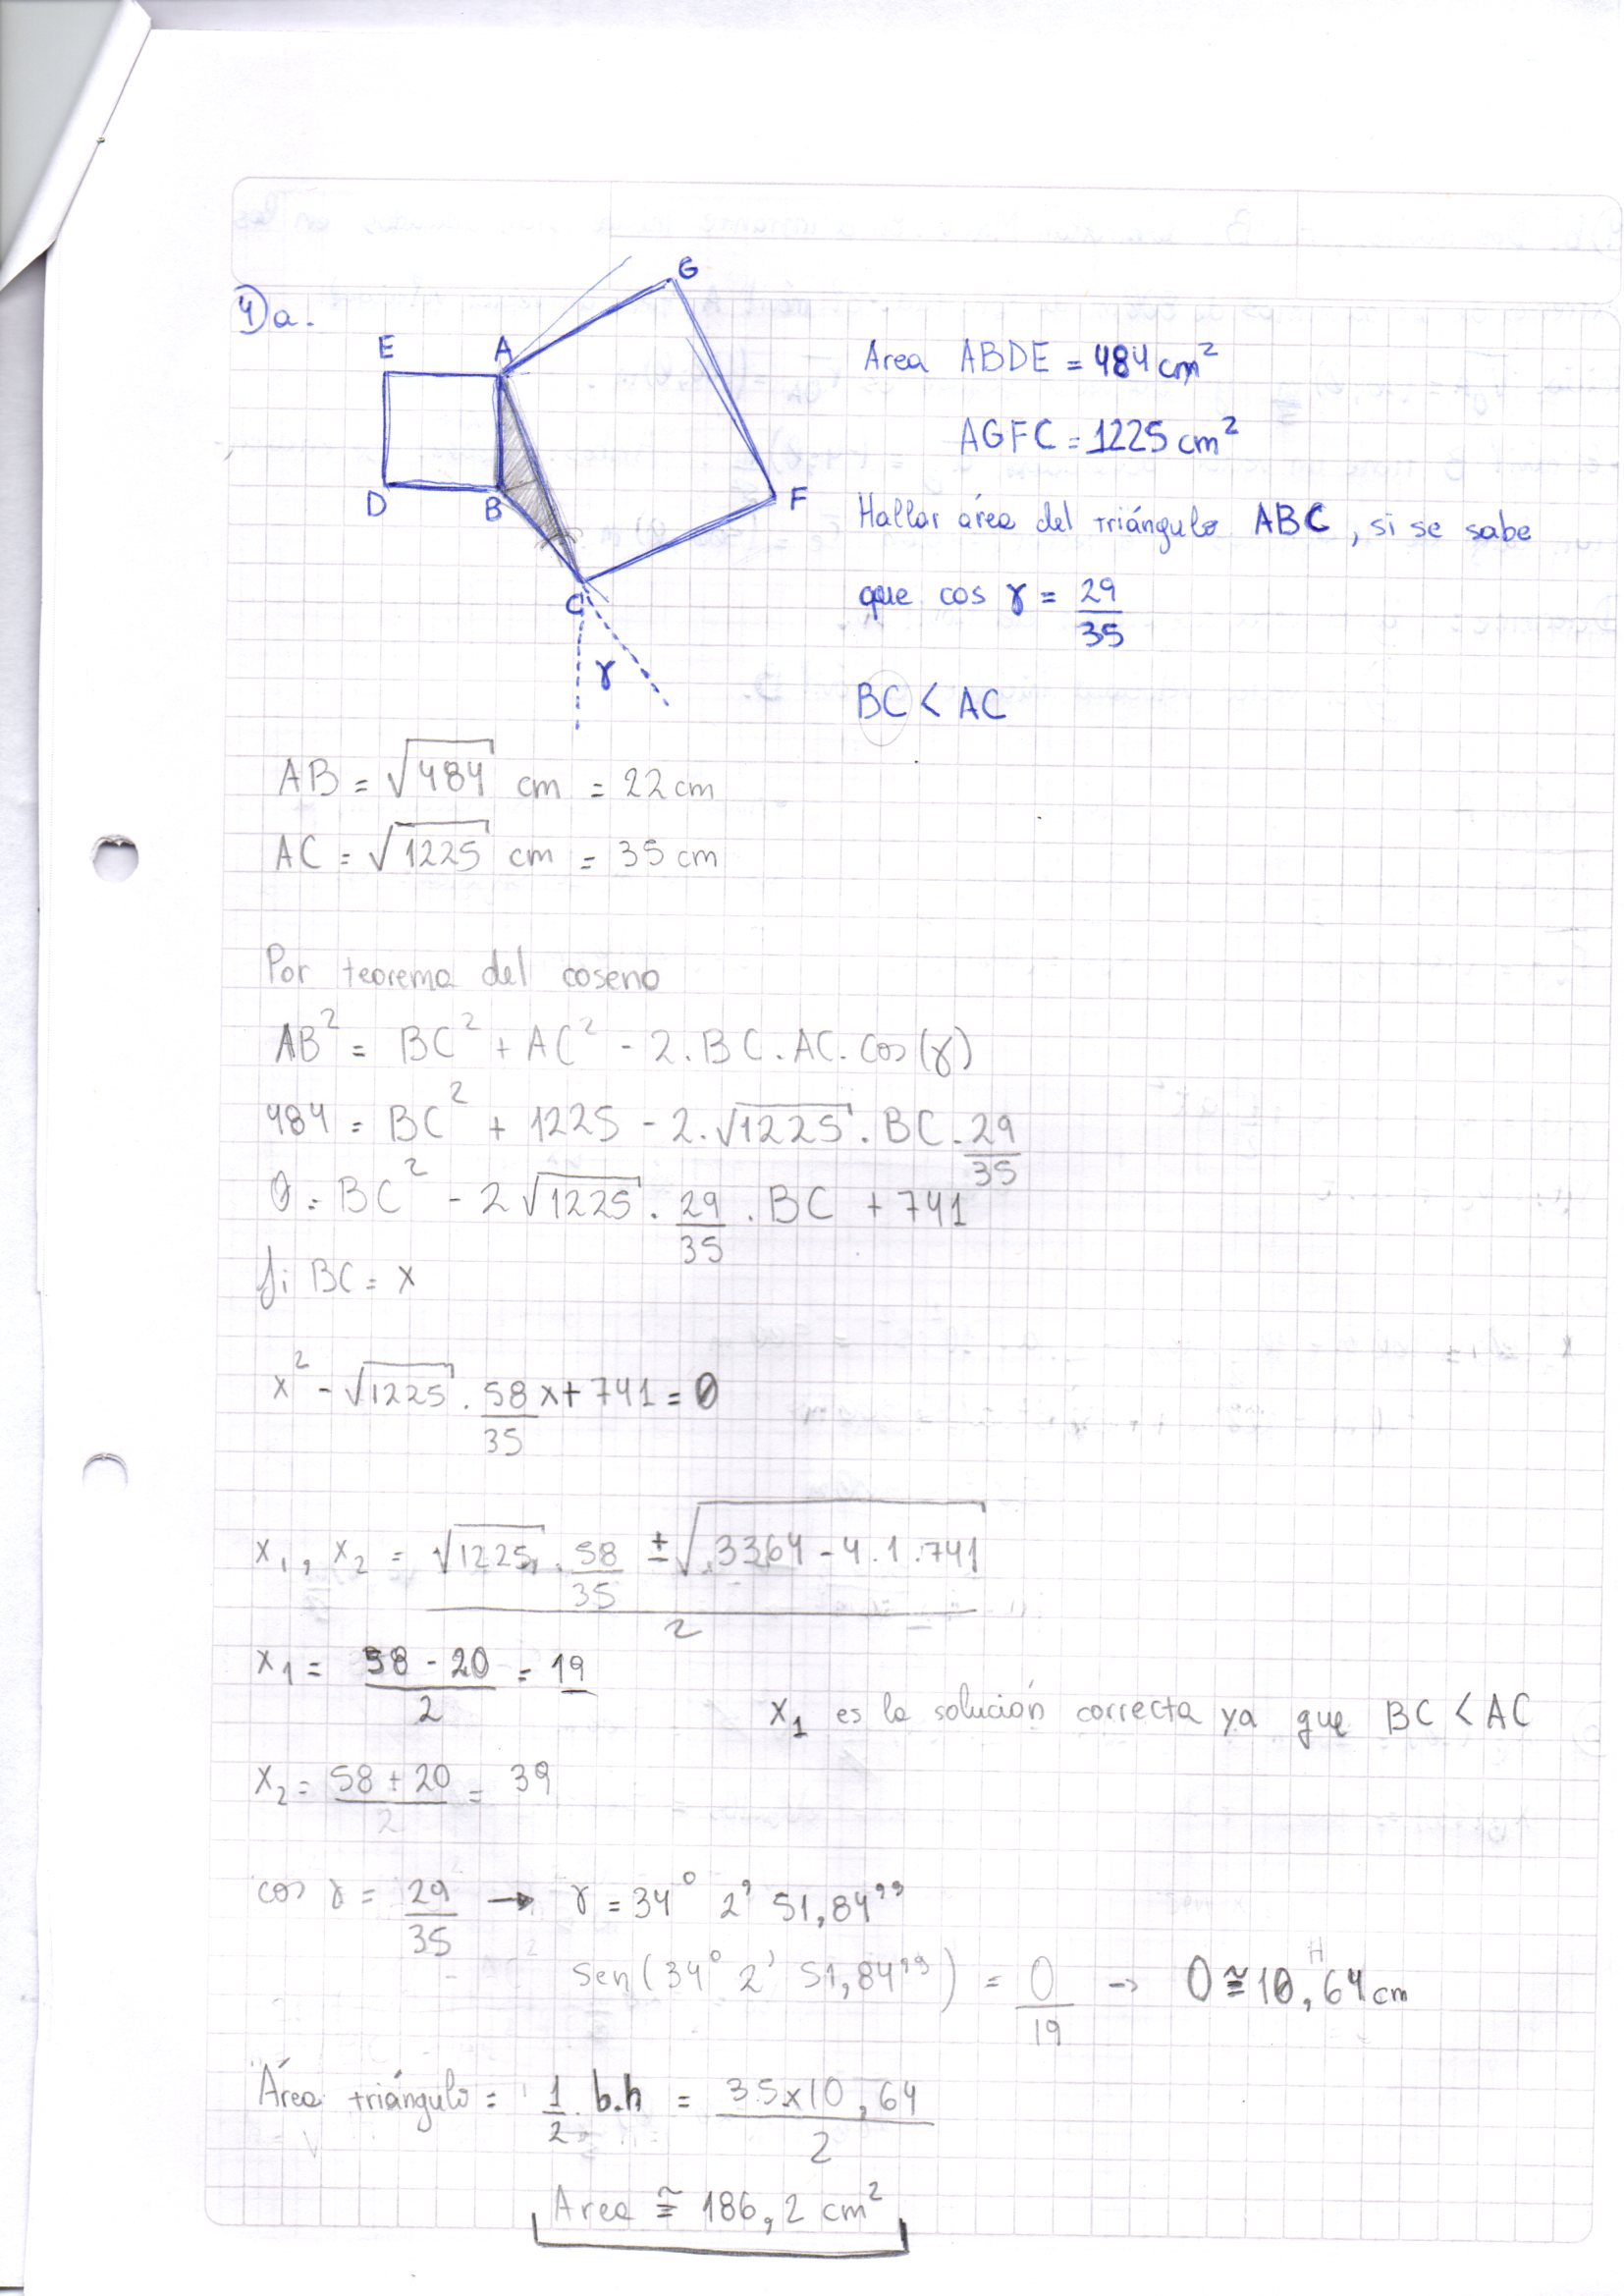 4) a.
G
E A
Area ABDE = 484 cm²
AGFC = 1225 cm²
D B F
Hallar área del triángulo ABC, si se sabe
que cos γ = 29/35
C
γ
BC < AC
AB = √484 cm = 22 cm
AC = √1225 cm = 35 cm
Por teorema del coseno
AB² = BC² + AC² - 2.BC.AC.cos(γ)
484 = BC² + 1225 - 2.√1225.BC.29/35
0 = BC² - 2√1225.29/35.BC + 741
Si BC = x
x² - √1225.58/35 x + 741 = 0
x₁, x₂ = (√1225.58/35 ± √3364 - 4.1.741)/2
x₁ = (58 - 20)/2 = 19
x₁ es la solución correcta ya que BC < AC
x₂ = (58 + 20)/2 = 39
cos γ = 29/35 → γ = 34° 2' 51,84''
sen(34° 2' 51,84'') = O/19 → O ≅ 10,64 cm
H
Área triángulo = 1/2.b.h = 35x10,64/2
Area ≅ 186,2 cm²